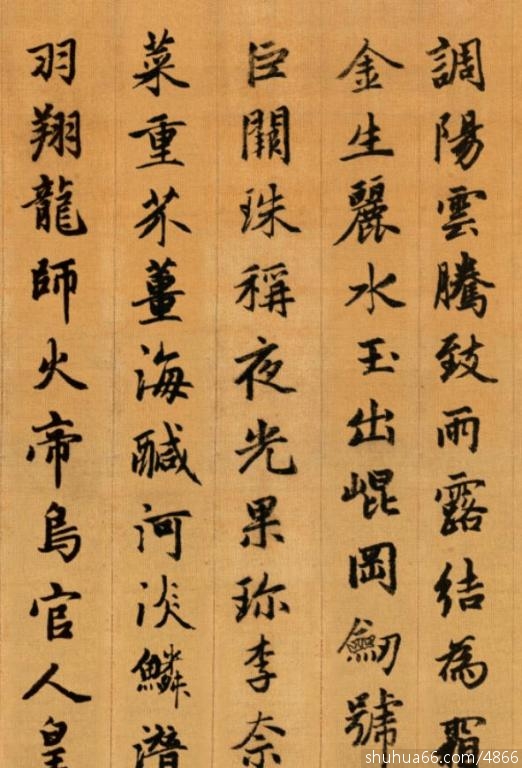 調陽雲騰致雨露結為霜
金生麗水玉出崐岡劒號
巨闕珠稱夜光果珎李奈
菜重芥薑海鹹河淡鱗潛
羽翔龍師火帝鳥官人皇
shuhua66.com/4866